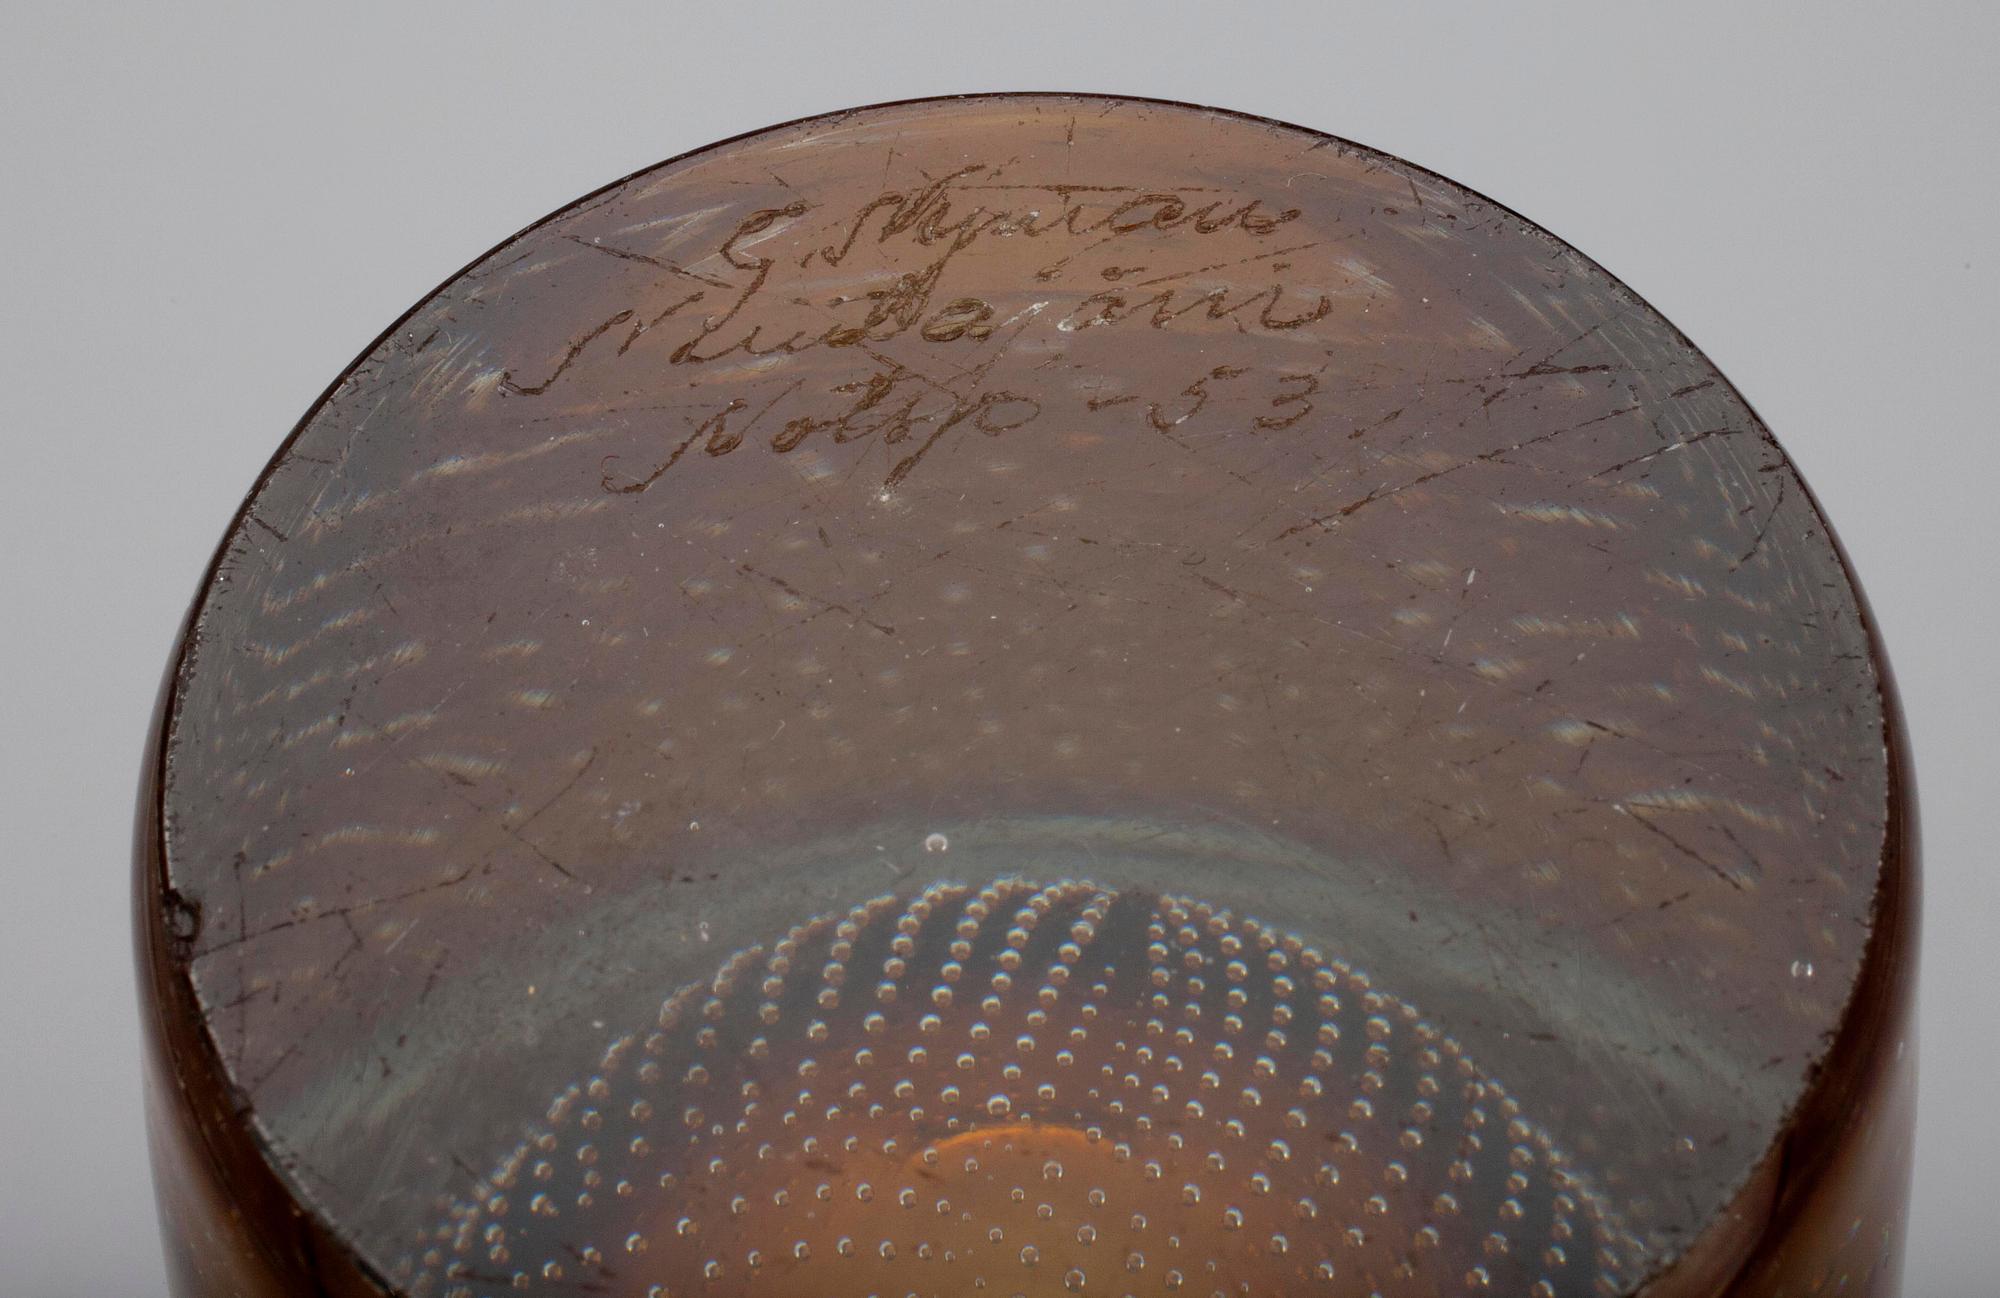 G. Nyman
Nuutajärvi
Notsjö - 53